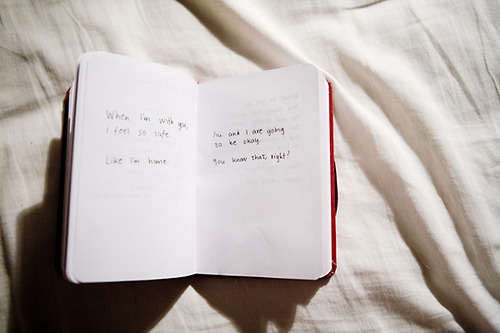 When I'm with you,
I feel so safe.
Like I'm home.
You and I are going
to be okay.
You know that, right?